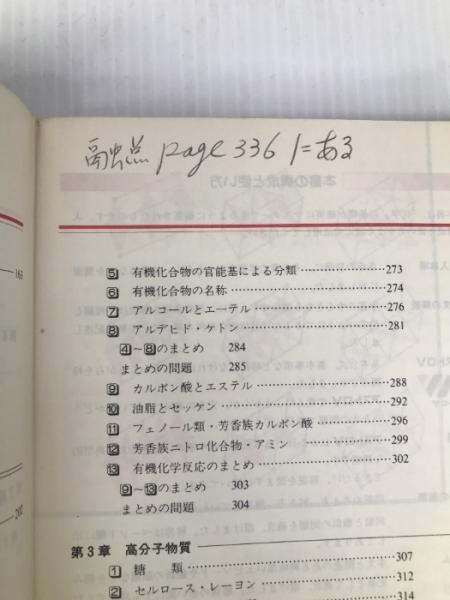 融点 page 336 にある
163
5 有機化合物の官能基による分類 ……………… 273
6 有機化合物の名称 ……………… 274
7 アルコールとエーテル ……………… 276
8 アルデヒド・ケトン ……………… 281
4~8のまとめ 284
まとめの問題 285
9 カルボン酸とエステル ……………… 288
10 油脂とセッケン ……………… 292
11 フェノール類・芳香族カルボン酸 ……………… 296
12 芳香族ニトロ化合物・アミン ……………… 299
13 有機化学反応のまとめ ……………… 302
9~13のまとめ 303
まとめの問題 304
202
第3章 高分子物質
1 糖 類 ……………… 307
2 セルロース・レーヨン ……………… 312
314